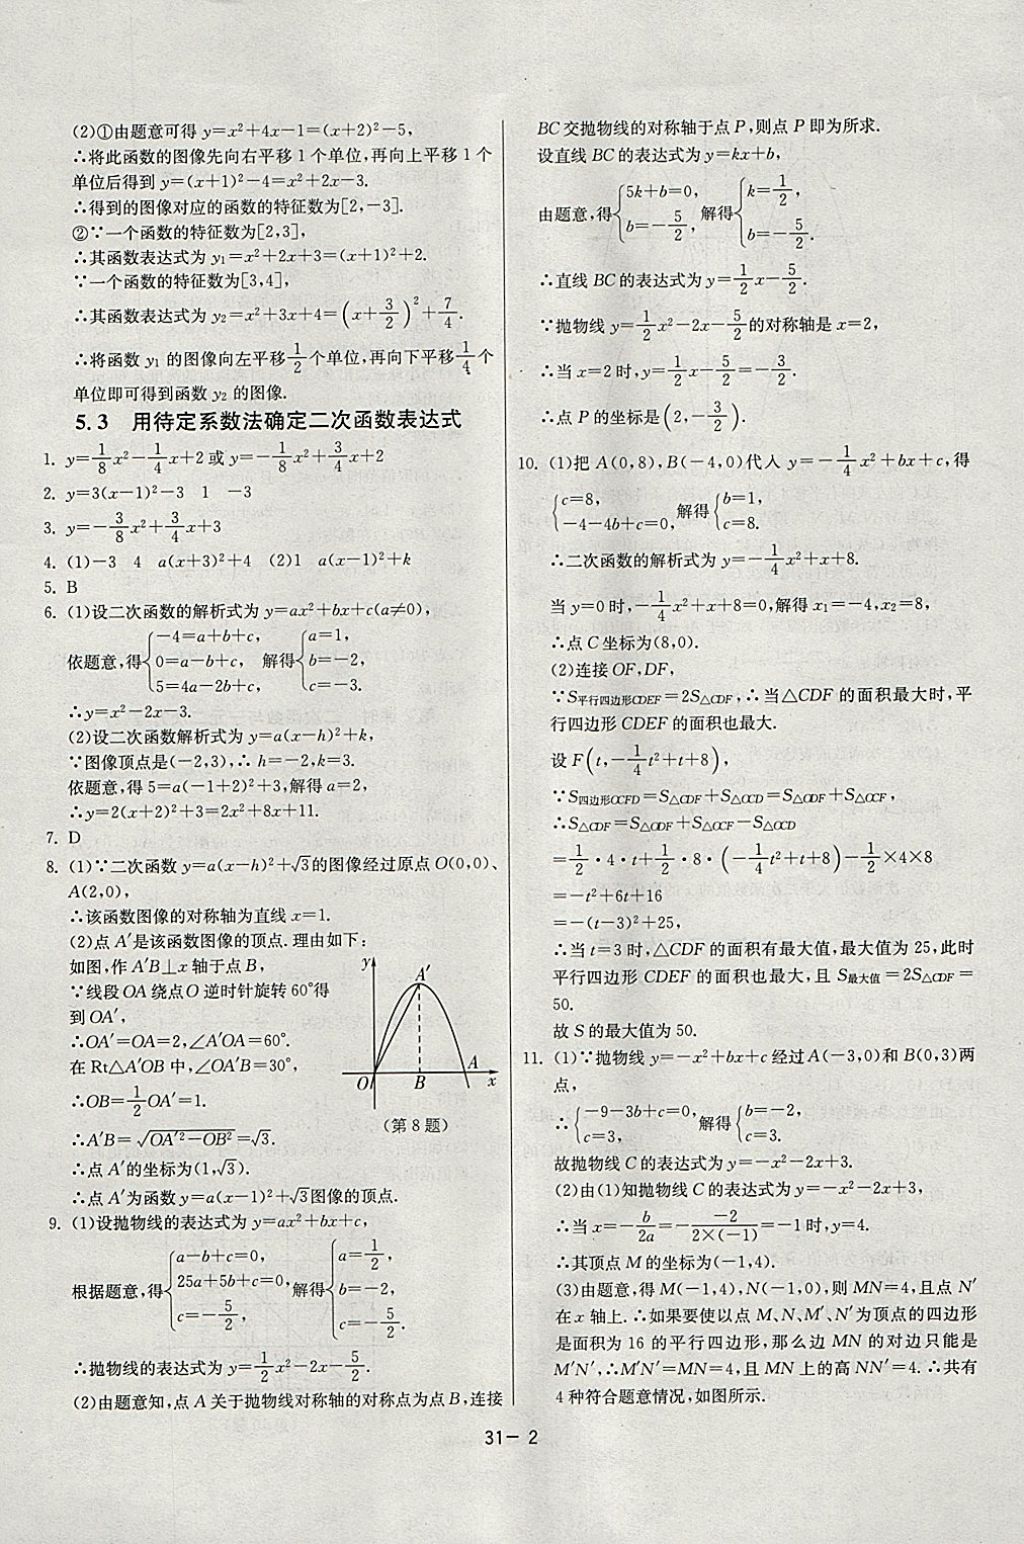 (2)①由题意可得 y=x²+4x−1=(x+2)²−5,
∴将此函数的图像先向右平移 1 个单位,再向上平移 1 个
单位后得到 y=(x+1)²−4=x²+2x−3.
∴得到的图像对应的函数的特征数为[2,−3].
②∵一个函数的特征数为[2,3],
∴其函数表达式为 y₁=x²+2x+3=(x+1)²+2.
∵一个函数的特征数为[3,4],
∴其函数表达式为 y₂=x²+3x+4=(x+3/2)²+7/4.
∴将函数 y₁ 的图像向左平移1/2个单位,再向下平移1/4个
单位即可得到函数 y₂ 的图像.
5.3 用待定系数法确定二次函数表达式
1. y=1/8x²−1/4x+2 或 y=−1/8x²+3/4x+2
2. y=3(x−1)²−3 1 −3
3. y=−3/8x²+3/4x+3
4. (1)−3 4 a(x+3)²+4 (2)1 a(x−1)²+k
5. B
6. (1)设二次函数的解析式为 y=ax²+bx+c(a≠0),
依题意,得{−4=a+b+c, 0=a−b+c, 5=4a−2b+c, 解得{a=1, b=−2, c=−3.
∴y=x²−2x−3.
(2)设二次函数解析式为 y=a(x−h)²+k,
∵图像顶点是(−2,3),∴h=−2,k=3.
依题意,得 5=a(−1+2)²+3,解得 a=2,
∴y=2(x+2)²+3=2x²+8x+11.
7. D
8. (1)∵二次函数 y=a(x−h)²+√3的图像经过原点 O(0,0)、
A(2,0),
∴该函数图像的对称轴为直线 x=1.
(2)点 A′是该函数图像的顶点.理由如下:
如图,作 A′B⊥x 轴于点 B,
∵线段 OA 绕点O 逆时针旋转 60°得
到 OA′,
∴OA′=OA=2,∠A′OA=60°.
在 Rt△A′OB 中,∠OA′B=30°,
∴OB=1/2OA′=1.
∴A′B=√(OA′²−OB²)=√3.
∴点 A′的坐标为(1,√3).
∴点 A′为函数 y=a(x−1)²+√3图像的顶点.
y
A′
O
B
A
x
(第 8 题)
9. (1)设抛物线的表达式为 y=ax²+bx+c,
根据题意,得{a−b+c=0, 25a+5b+c=0, c=−5/2, 解得{a=1/2, b=−2, c=−5/2.
∴抛物线的表达式为 y=1/2x²−2x−5/2.
(2)由题意知,点 A 关于抛物线对称轴的对称点为点 B,连接
BC 交抛物线的对称轴于点 P,则点 P 即为所求.
设直线 BC 的表达式为 y=kx+b,
由题意,得{5k+b=0, b=−5/2, 解得{k=1/2, b=−5/2.
∴直线 BC 的表达式为 y=1/2x−5/2.
∵抛物线 y=1/2x²−2x−5/2的对称轴是 x=2,
∴当 x=2 时,y=1/2x−5/2=−3/2.
∴点 P 的坐标是(2,−3/2).
10. (1)把 A(0,8),B(−4,0)代人 y=−1/4x²+bx+c,得
{c=8, −4−4b+c=0, 解得{b=1, c=8.
∴二次函数的解析式为 y=−1/4x²+x+8.
当 y=0 时,−1/4x²+x+8=0,解得 x₁=−4,x₂=8,
∴点 C 坐标为(8,0).
(2)连接 OF,DF,
∵S平行四边形CDEF=2S△CDF,∴当△CDF 的面积最大时,平
行四边形 CDEF 的面积也最大.
设 F(t,−1/4t²+t+8),
∵S四边形OCFD=S△CDF+S△OCD=S△ODF+S△OCF,
∴S△CDF=S△ODF+S△OCF−S△OCD
=1/2·4·t+1/2·8·(−1/4t²+t+8)−1/2×4×8
=−t²+6t+16
=−(t−3)²+25,
∴当 t=3 时,△CDF 的面积有最大值,最大值为 25,此时
平行四边形 CDEF 的面积也最大,且 S最大值=2S△CDF=
50.
故 S 的最大值为 50.
11. (1)∵抛物线 y=−x²+bx+c 经过A(−3,0)和 B(0,3)两
点,
∴{−9−3b+c=0, c=3, 解得{b=−2, c=3.
故抛物线 C 的表达式为 y=−x²−2x+3.
(2)由(1)知抛物线 C 的表达式为 y=−x²−2x+3,
∴当 x=−b/2a=−−2/2×(−1)=−1 时,y=4.
∴其顶点 M 的坐标为(−1,4).
(3)由题意,得 M(−1,4),N(−1,0),则 MN=4,且点 N′
在 x 轴上.∴如果要使以点 M、N、M′、N′为顶点的四边形
是面积为 16 的平行四边形,那么边 MN 的对边只能是
M′N′,∴M′N′=MN=4,且 MN 上的高 NN′=4.∴共有
4 种符合题意情况,如图所示.
31− 2